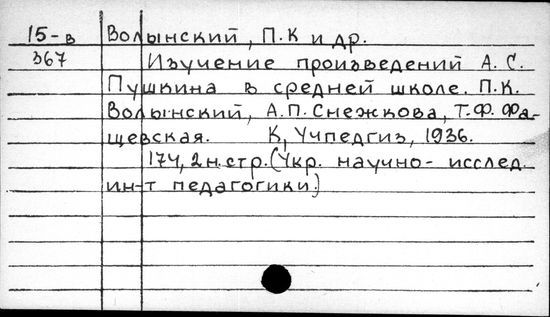 15-в Волынский, П.К и др.
367 Изучение произведений А. С.
Пушкина в средней школе. П.К.
Волынский, А.П. Снежкова, Т.Ф. Фа-
щевская. К, Учпедгиз, 1936.
174, 2 н. стр. (Укр. научно- исслед.
ин-т педагогики.)